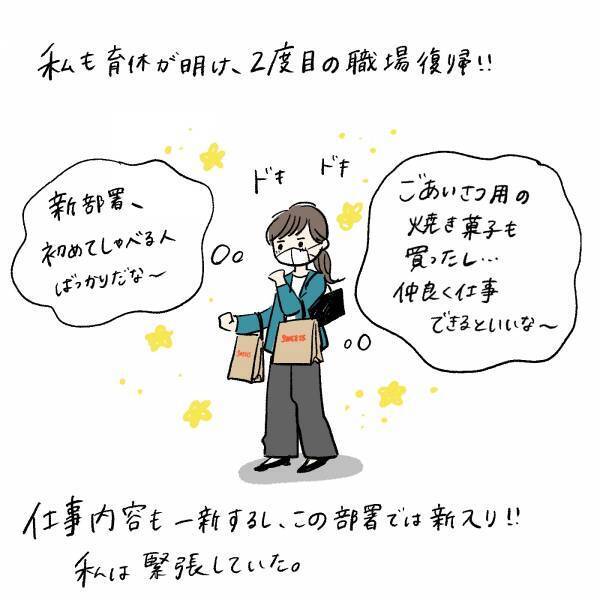 私も育休が明け、2度目の職場復帰!!
ドキ ドキ
新部署、
初めてしゃべる人
ばっかりだな〜
ごあいさつ用の
焼き菓子も
買ったし…
仲良く仕事
できるといいな〜
SWEETS
SWEETS
仕事内容も一新するし、この部署では新入り!!
私は緊張していた。